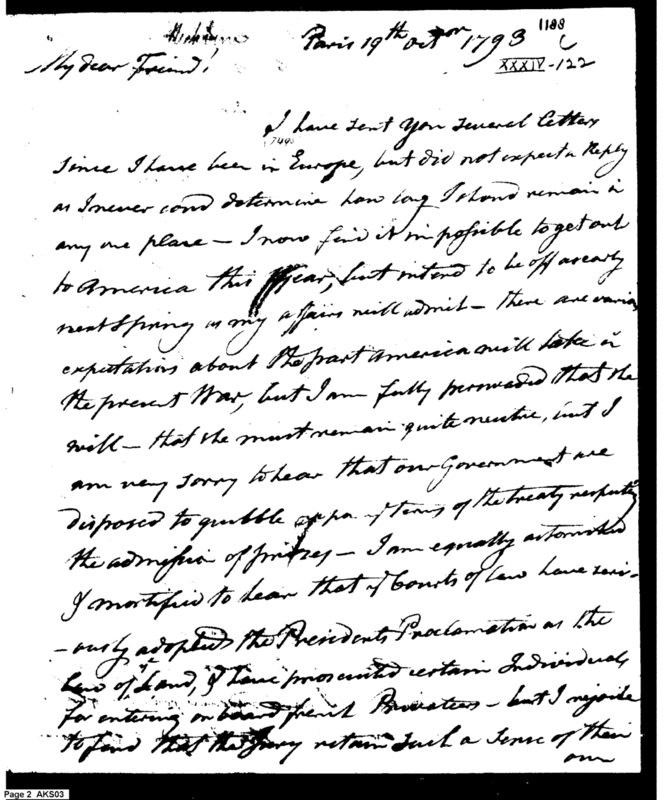 Paris 19th Octr 1793
1188
XXXIV-122
My dear Friend!
I have sent you several letters
since I have been in Europe, but did not expect a Reply
as I never coud determine how long I shoud remain in
any one place – I now find it impossible to get out
to America this year, but intend to be off as early
next Spring as my affairs will admit – there are various
expectations about the part America will take in
the present War, but I am fully perswaded that she
will – that she must remain quite neutre, but I
am very sorry to hear that our Government are
disposed to quibble terms of the treaty respecting
the admission of prizes – I am equally astonished
& mortified to hear that ye Courts of law have seri-
-ously adopted the Presidents Proclamation as the
Law of ye Land, & have prosecuted certain Individuals
for entering on board french Privateers – but I rejoice
to find that the Jury retain such a sense of their
own
Page 2 AKS03